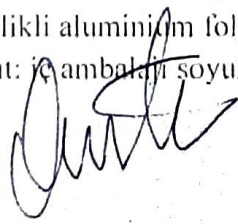 likli aluminium fol
t: iç ambalajı soyu